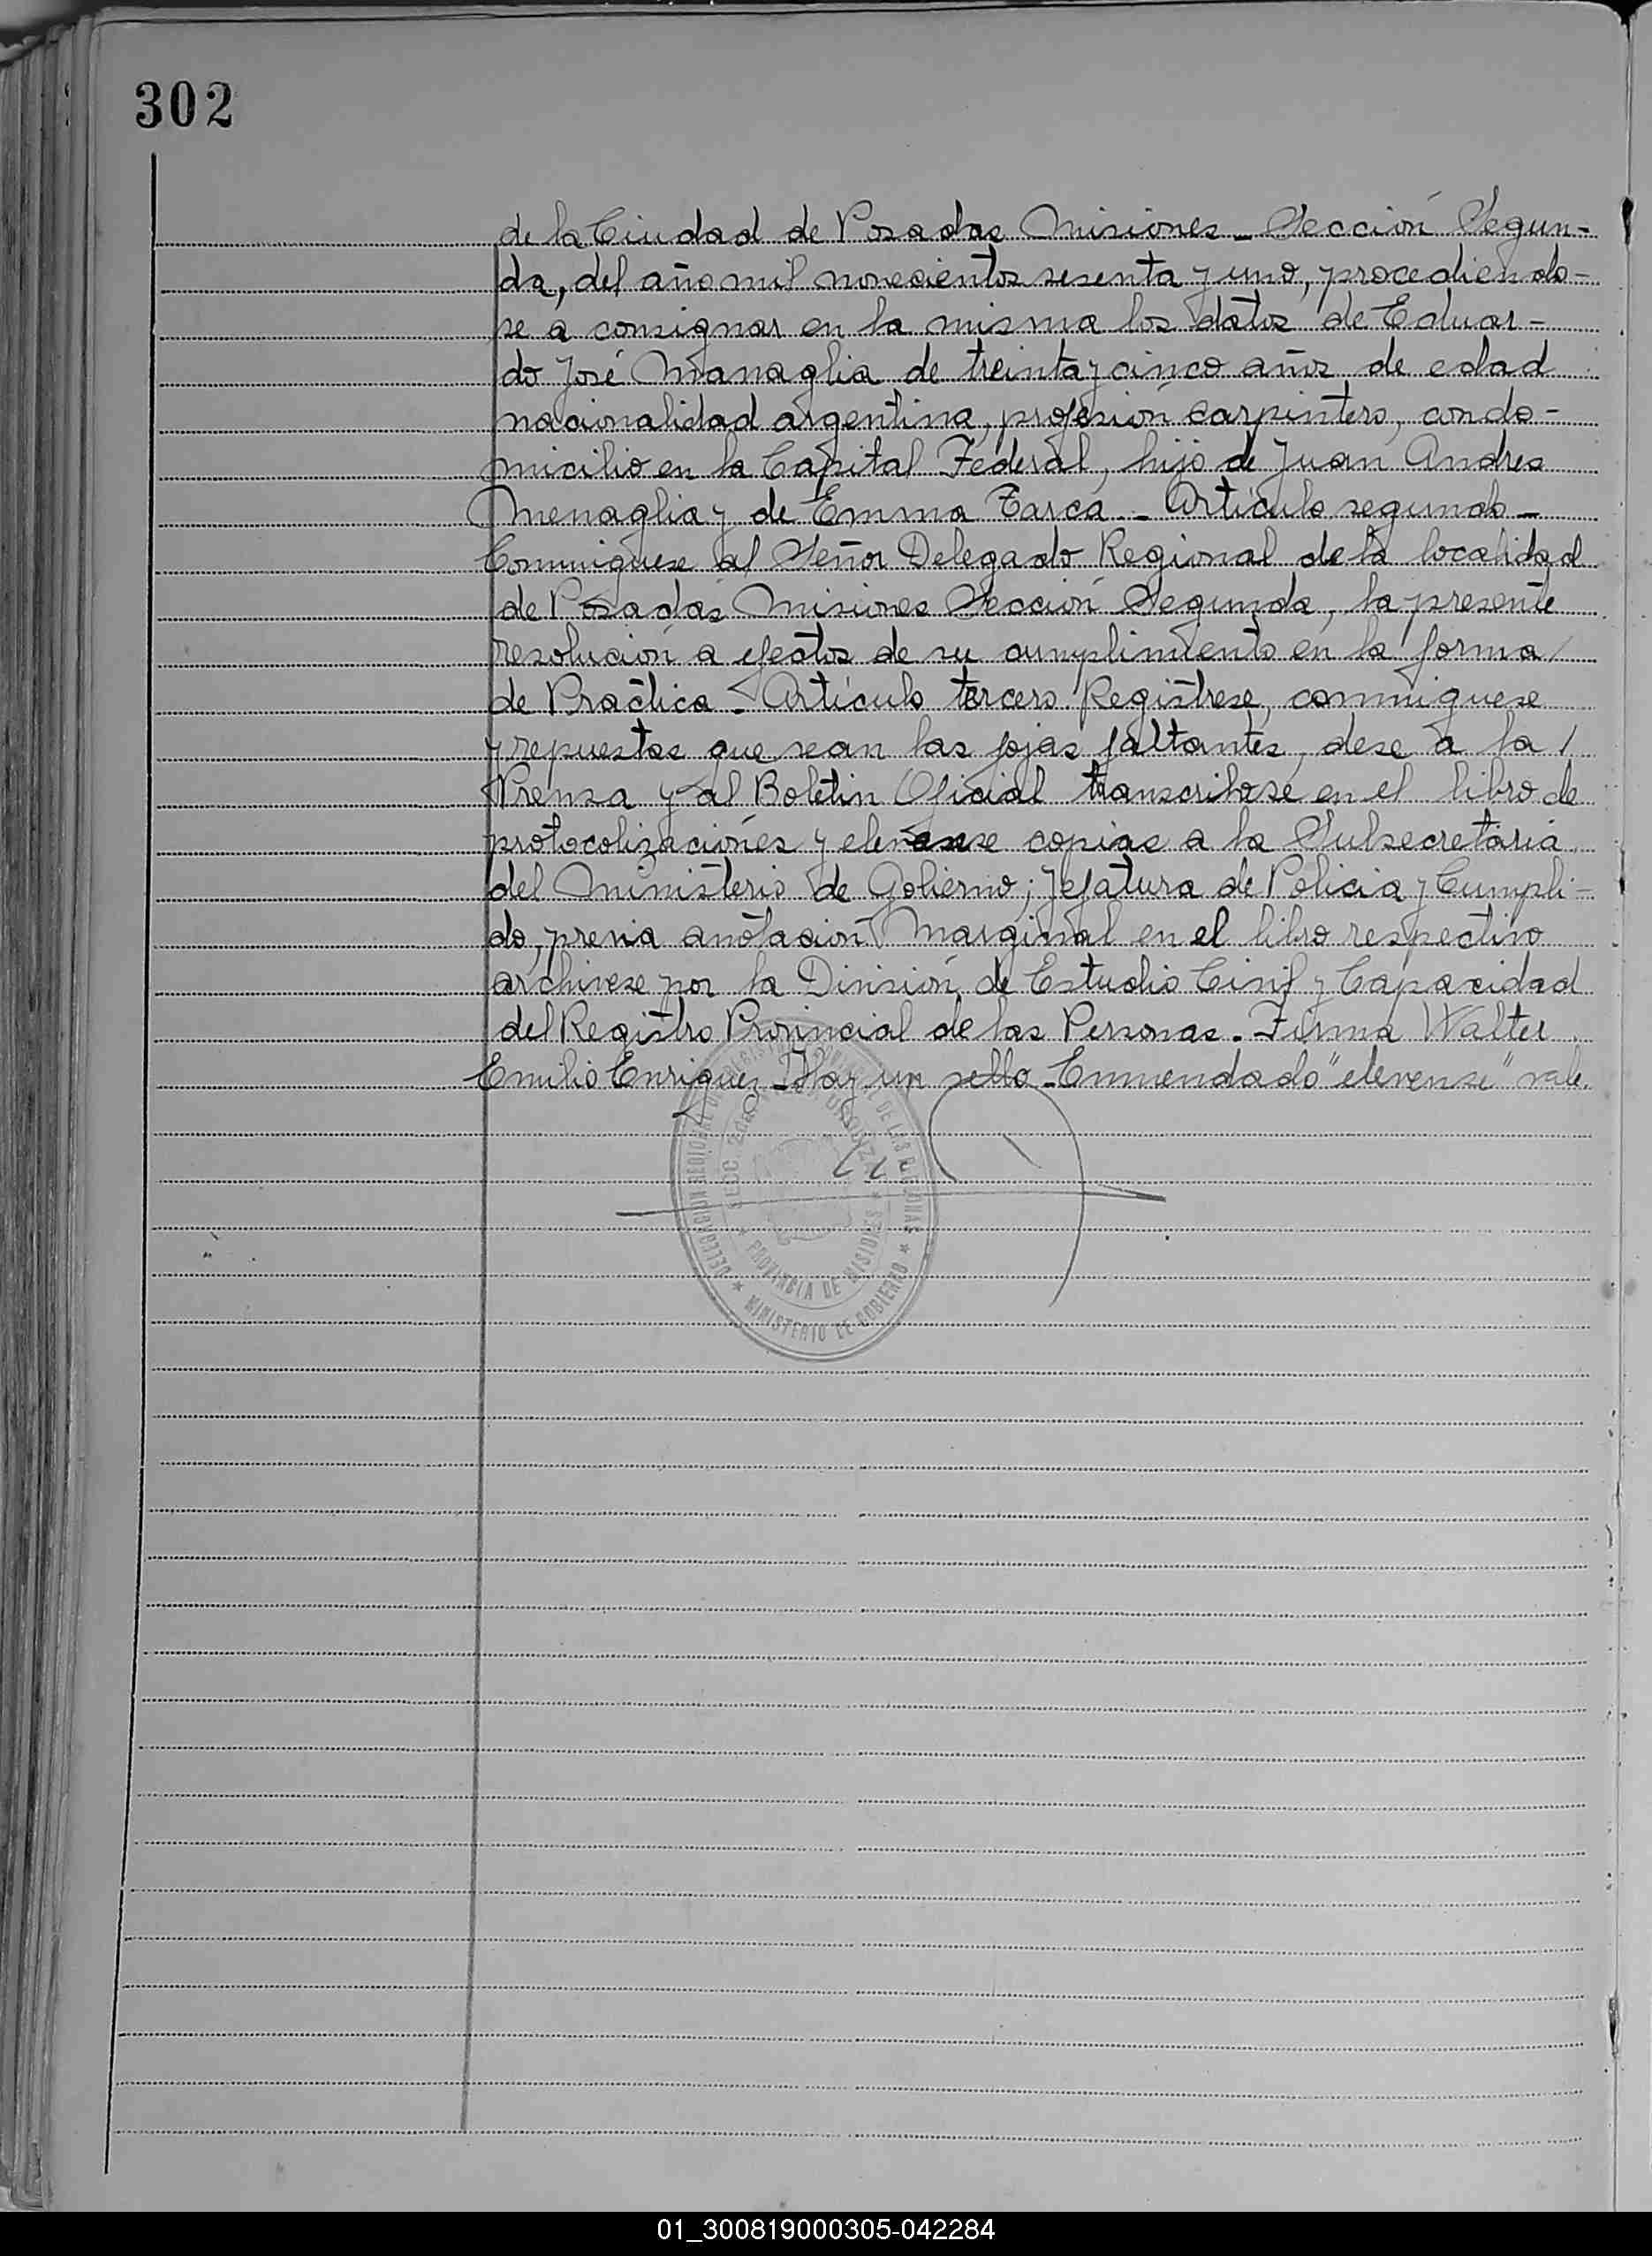 302
de la Ciudad de Posadas Misiones - Sección Segun-
da, del año mil novecientos sesenta y uno, procediendo-
se a consignar en la misma los datos de Eduar-
do José Managlia de treinta y cinco años de edad
nacionalidad argentina, profesión carpintero, con do-
micilio en la Capital Federal, hijo de Juan Andres
Menaglia y de Emma Tarca - Artículo segundo -
Comuniquese al Señor Delegado Regional de la localidad
de Posadas Misiones Sección Segunda, la presente
resolución a efectos de su cumplimiento en la forma /
de Practica - Artículo tercero Registrese, comuniquese
y repuestas que sean las fojas faltantes, dese a la /
Prensa y al Boletin Oficial transcribase en el libro de
protocolizaciónes y elevense copias a la Subsecretaria
del Ministerio de Gobierno; Jefatura de Policia y Cumpli-
do, previa anotación Marginal en el libro respectivo
archivese por la División de Estudio Civil y Capacidad
del Registro Provincial de las Personas. Firma Walter
Emilio Enriquez - Hay un sello - Enmendado "elevense" vale.
DELEGACION REGIONAL DEL REGISTRO PROVINCIAL DE LAS PERSONAS
SECC. 2da
PROVINCIA DE MISIONES
MINISTERIO DE GOBIERNO
01_300819000305-042284